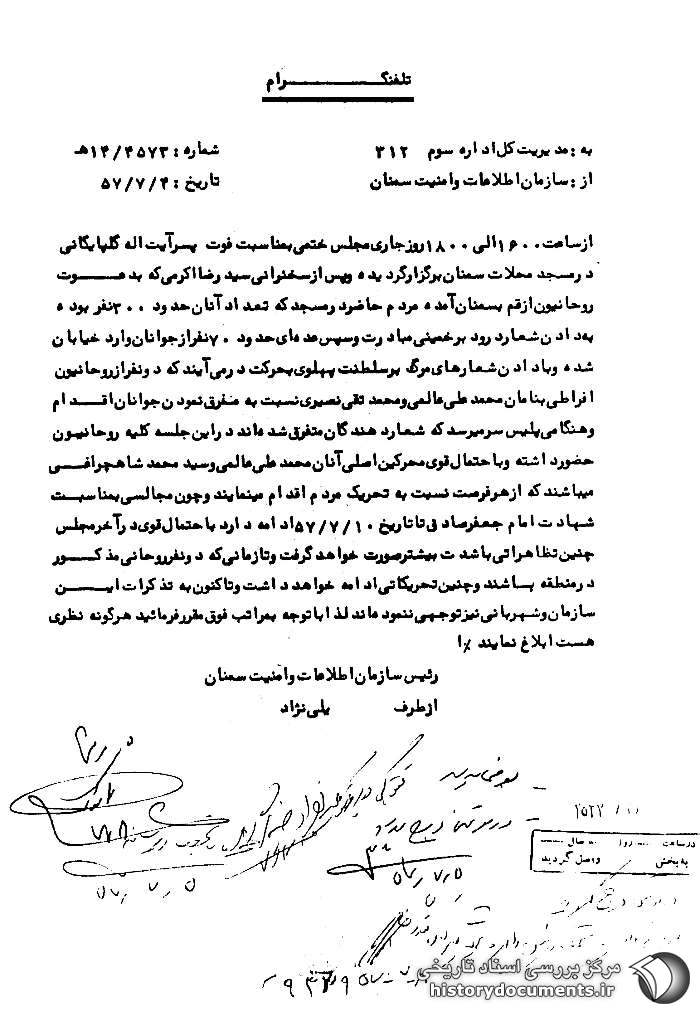 تلفنگرام
به : مدیریت کل اداره سوم ۳۱۲ شماره : ۱۴/۴۵۷۳هـ
از : سازمان اطلاعات وامنیت سمنان تاریخ : ۵۷/۷/۴
ازساعت ۱۶۰۰ الی ۱۸۰۰ روز جاری مجلس ختمی بمناسبت فوت پسر آیت اله گلپایگانی
در مسجد محلات سمنان برگزار گردیده وپس از سخنرانی سید رضا اکرمی که بدعـوت
روحانیون ازقم بسمنان آمده مردم حاضر در مسجد که تعداد آنان حدود ۳۰۰ نفر بوده
به دادن شعار درود بر خمینی مبادرت وسپس عده ای حدود ۷۰ نفراز جوانان وارد خیابان
شده وبا دادن شعارهای مرگ بر سلطنت پهلوی بحرکت در می آیند که دونفراز روحانیون
افراطی بنامان محمد علی عالمی ومحمد تقی نصیری نسبت به متفرق نمودن جوانان اقدام
وهنگامی پلیس سر میرسد که شعار دهندگان متفرق شده اند در این جلسه کلیه روحانیون
حضور داشته وبا حتمال قوی محرکین اصلی آنان محمد علی عالمی وسید محمد شاهچراغی
میباشند که از هر فرصت نسبت به تحریک مردم اقدام مینمایند وچون مجالسی بمناسبت
شهادت امام جعفر صادق تا تاریخ ۵۷/۷/۱۰ ادامه دارد با حتمال قوی در آخر مجلس
چنین تظاهراتی باشدت بیشتر صورت خواهد گرفت وتا زمانی که دونفر روحانی مذکـور
در منطقه بـاشند وچنین تحریکاتی ادامه خواهد داشت وتاکنون به تذکرات ایـن
سازمان وشهربانی نیز توجهی ننموده اند لذا با توجه بمراتب فوق مقرر فرمائید هرگونه نظری
هست ابلاغ نمایند ٪ا
رئیس سازمان اطلاعات وامنیت سمنان
ازطرف یلی نژاد
۵۷/۷/۵
۵۷/۷/۵
در ساعت روز سال
به بخش واصل گردید
مرکز بررسی اسناد تاریخی
historydocuments.ir